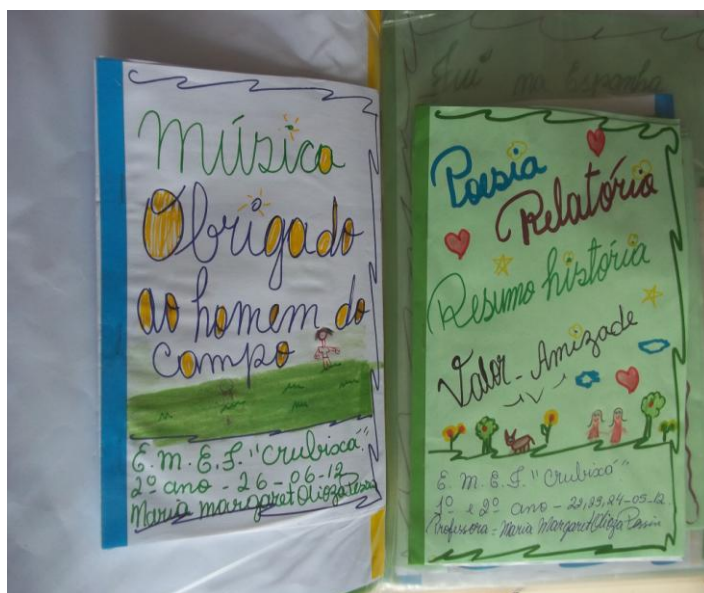 Música
Obrigado
ao homem do
campo
E.M.E.F. "Crubixá"
2º ano - 26-06-12
Maria Margaret
na Espanha
Poesia
Relatório
Resumo história
Valor - Amizade
E.M.E.F. "Crubixá"
1º e 2º ano - 22,23,24-05-12
Professora: Maria Margaret